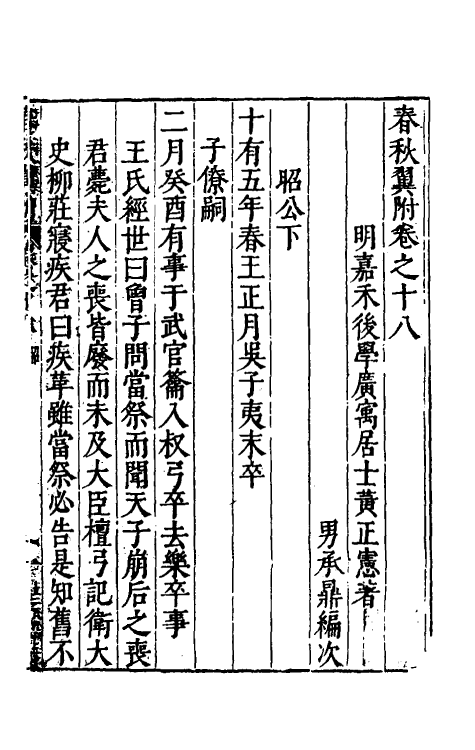 春秋翼附卷之十八
明嘉禾後學廣寓居士黃正憲著
男承鼎編次
昭公下
十有五年春王正月吳子夷末卒
子僚嗣
二月癸酉有事于武宮籥入叔弓卒去樂卒事
王氏經世曰曾子問當祭而聞天子崩后之喪
君薨夫人之喪皆廢而未及大臣檀弓記衛大
史柳莊寢疾君曰疾革雖當祭必告是知舊不